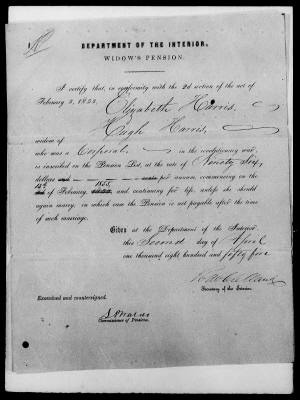 DEPARTMENT OF THE INTERIOR.
WIDOW'S PENSION.
I certify that, in conformity with the 2d section of the act of
February 3, 1853, Elizabeth Harris,
Hugh Harris,
widow of
who was a Corporal in the revolutionary war,
is inscribed on the Pension List, at the rate of Ninety Six,
dollars and cents per annum, commencing on the
of February, 1853, and continuing for life, unless she should
again marry, in which case the Pension is not payable after the time
of such marriage.
Given at the Department of the Interior
this Second day of April
one thousand eight hundred and fifty five
Secretary of the Interior.
Examined and countersigned.
Commissioner of Pensions.